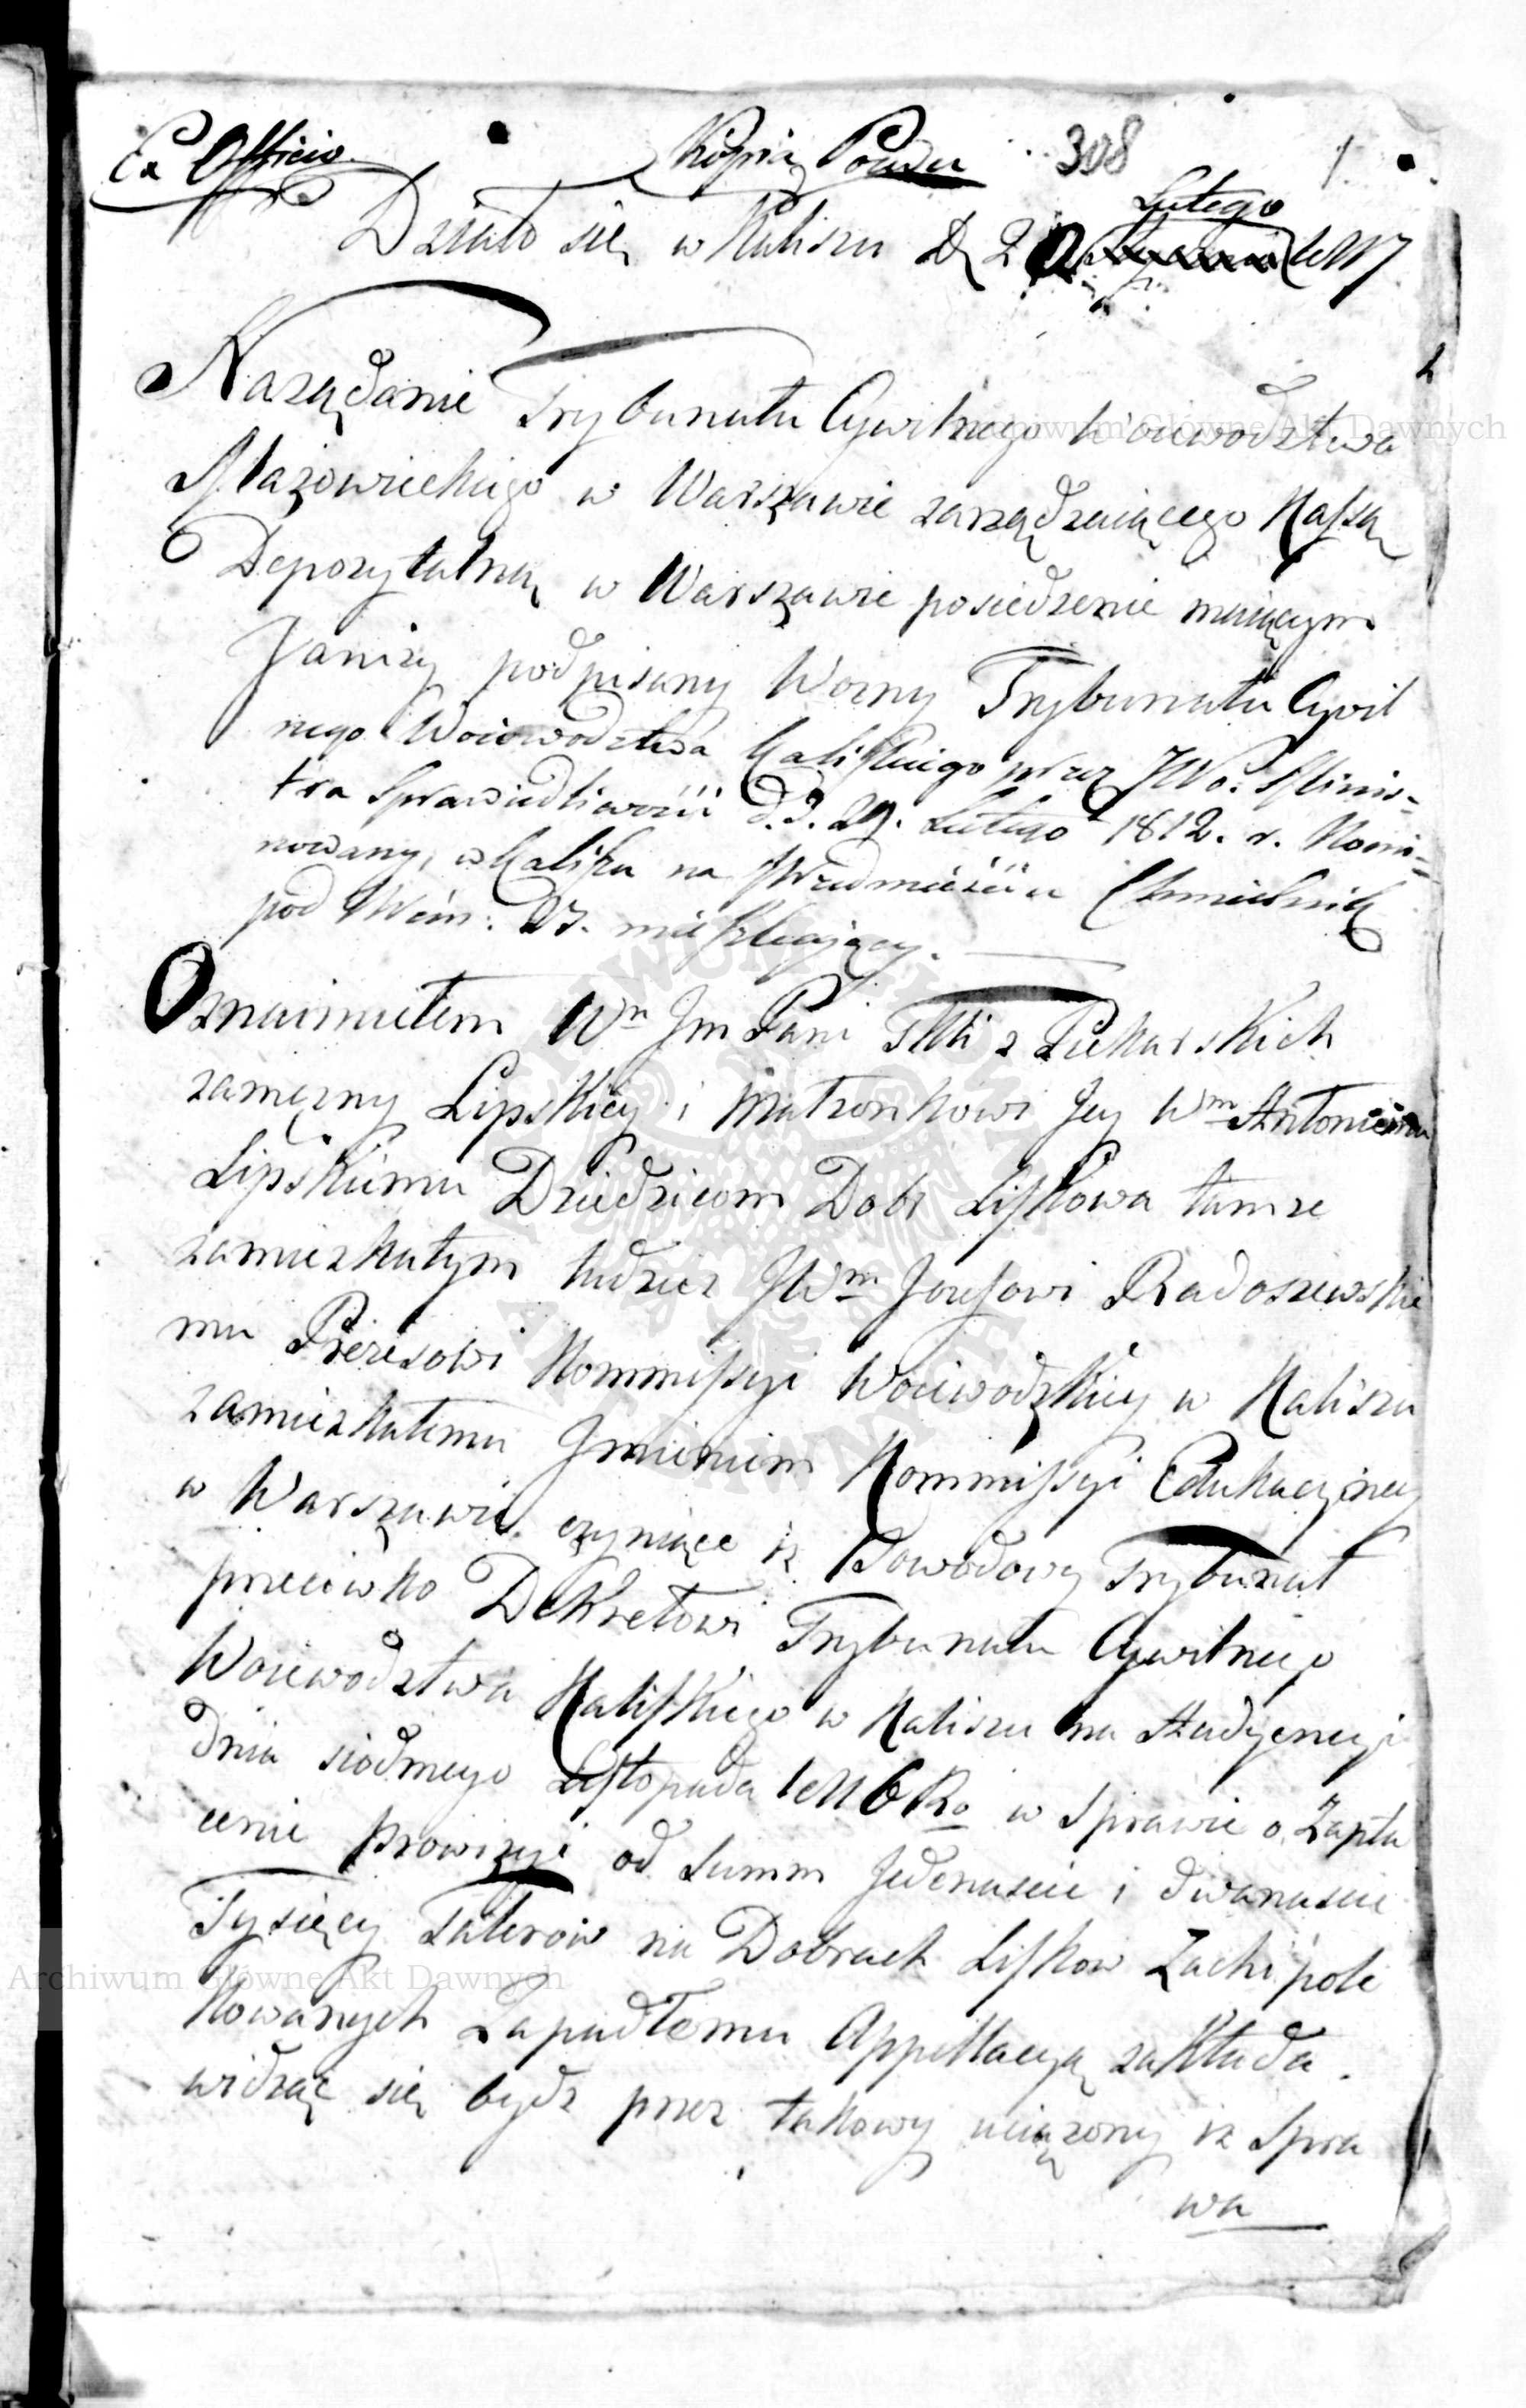 Ex Officio. Kopia Pozwu 308 1
Lutego
Działo się w Kaliszu D. 20 1817
Nażądanie Trybunału Cywilnego Woiewodztwa
Mazowieckiego w Warszawie zarządzaiącego Kassą
Depozytalną w Warszawie posiedzenie maiącym
Ja niży podpisany Wozny Trybunału Cywil
nego Woiewodztwa Kaliskiego przez JWo: Minis=
tra Sprawiedliwości d. d. 29. Lutego 1812. r. Nomi=
nowany, w Kaliszu na Przedmieściu Chmielnik
pod Nrem: 27. mieszkaiący.
Oznaimiłem Wn Jm Pani Tekli z Piekarskich
zamężny Lipskiey i Małzonkowi Jey Wm Antoniemu
Lipskiemu Dziedzicom Dobr Liskowa tamze
zamieszkałym tudziez JWm Jozefowi Radoszewskie
mu Prezesowi Kommissyi Woiewodzkiey w Kaliszu
zamieszkałemu Jmieniem Kommissyi Edukacyiney
w Warszawie czyniące iz Powodowy Trybunał
przeciwko Dekretowi Trybunału Cywilnego
Woiewodztwa Kaliskiego w Kaliszu na Audyencyi
dnia siodmego Listopada 1816 Ro w Sprawie o Zapła
cenie prowizyi od Summ Jedenascie i dwanascie
Tysięcy Talerow na Dobrach Liskow Zachipote
kowanych Zapadłemu Appellacyą zakłada.
widząc się bydz przez takowy uciązony iz Spra
wa